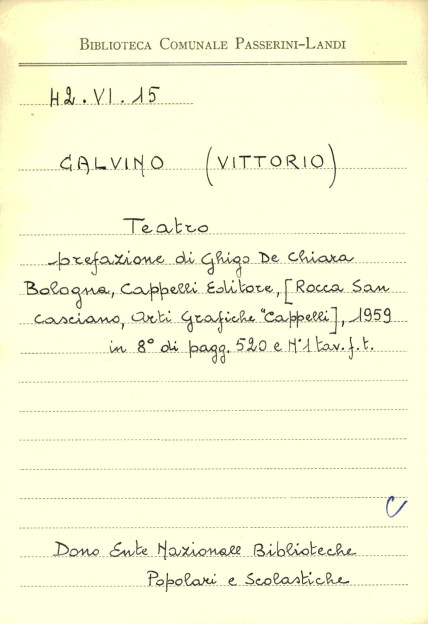 BIBLIOTECA COMUNALE PASSERINI-LANDI
42.VI.15
CALVINO (VITTORIO)
Teatro
prefazione di Ghigo De Chiara
Bologna, Cappelli Editore, [Rocca San
Casciano, Arti Grafiche "Cappelli], 1959
in 8° di pagg. 520 e N°1 tav. f. t.
C
Dono Ente Nazionale Biblioteche
Popolari e Scolastiche